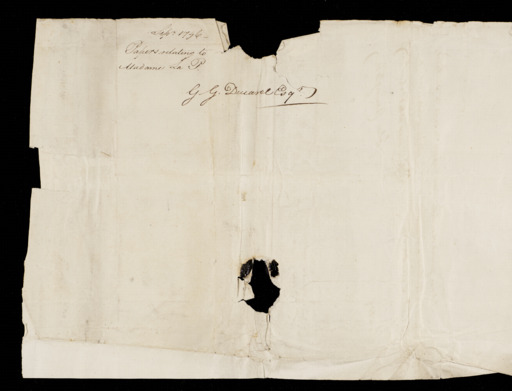 Sepr. 1796
Papers relating to
Madame la P
G. G. Ducarel Esqr